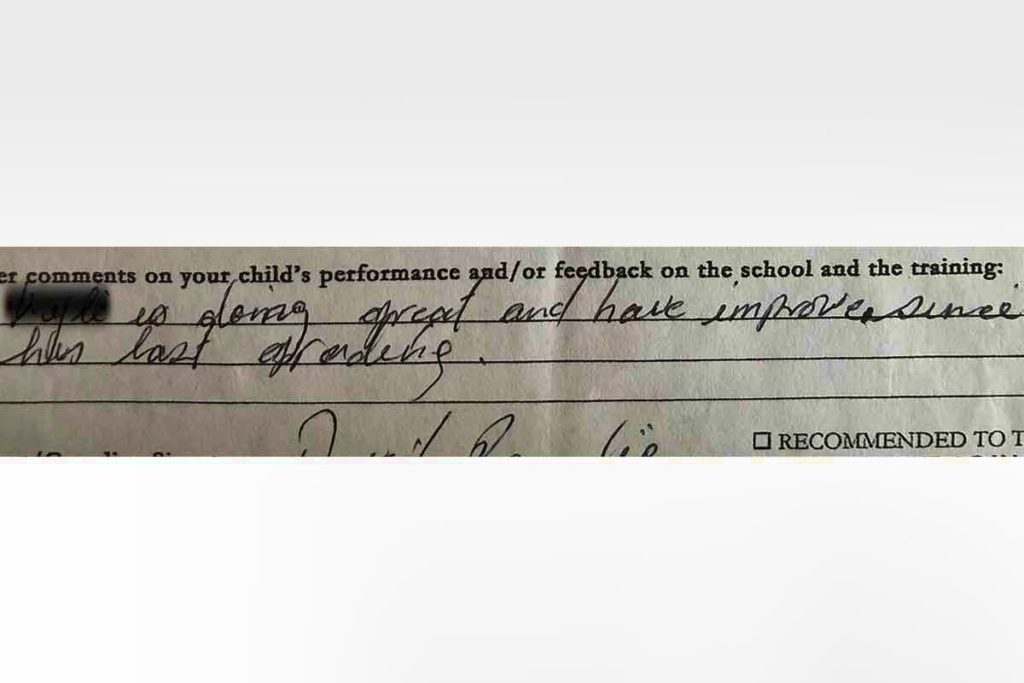 er comments on your child's performance and/or feedback on the school and the training:
is doing great and have improve since
his last grading.
☐ RECOMMENDED TO T